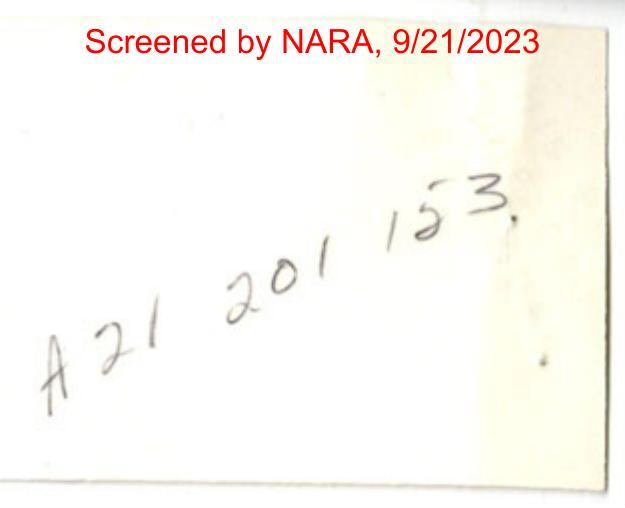 Screened by NARA, 9/21/2023
A21 201 153